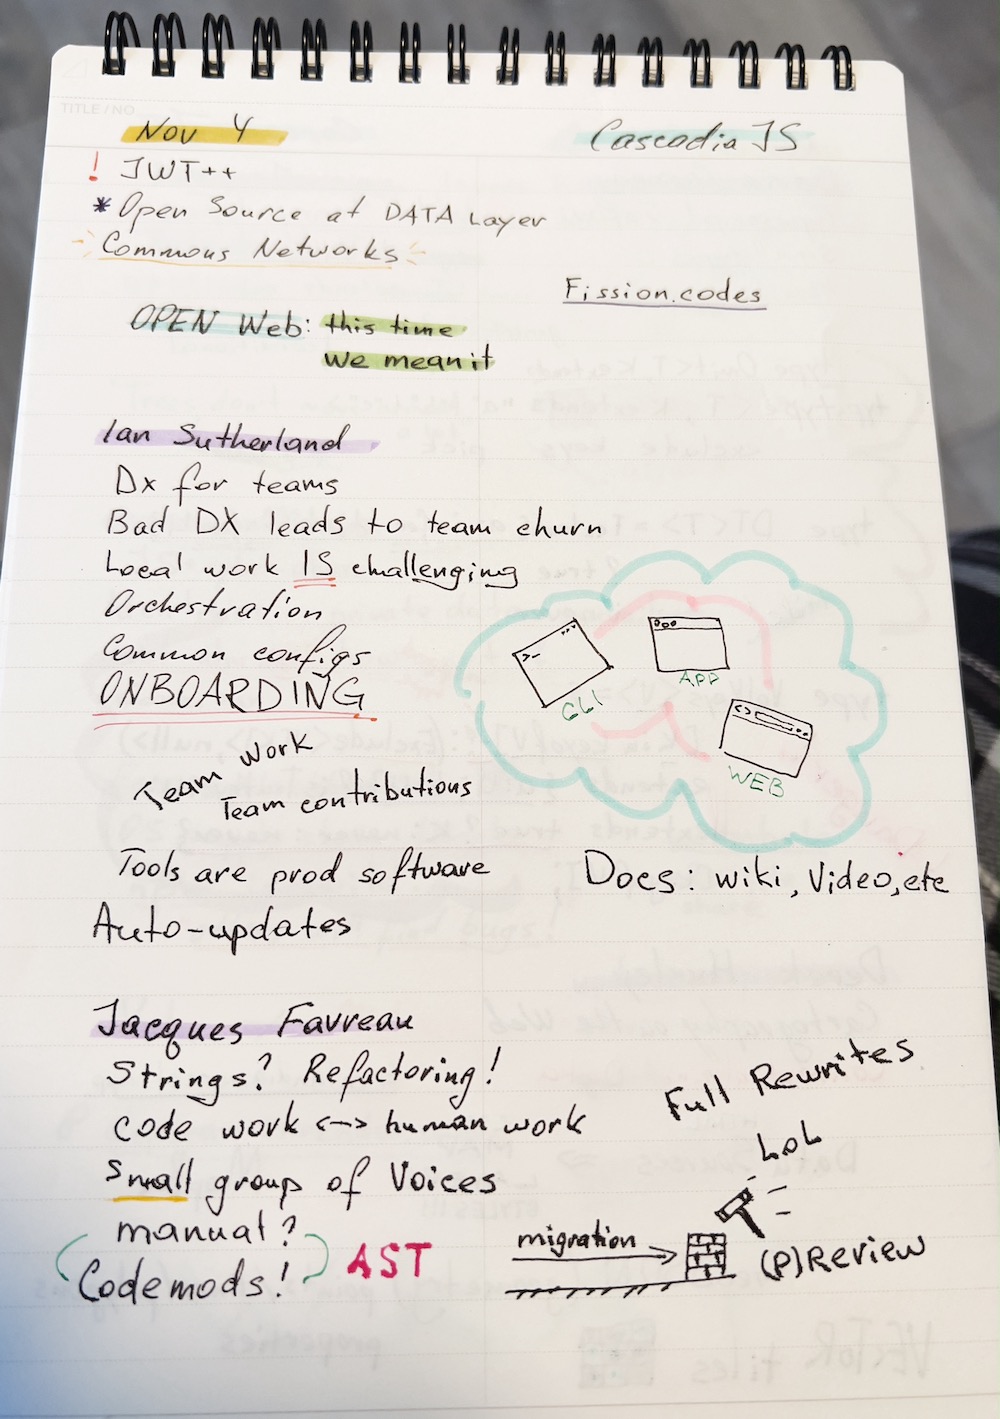 TITLE / NO.
Nov 4
Cascadia JS
! JWT++
* Open Source at DATA Layer
Commons Networks
Fission.codes
OPEN Web: this time
we mean it
Ian Sutherland
Dx for teams
Bad DX leads to team churn
Local work IS challenging
Orchestration
Common configs
ONBOARDING
>_
CLI
APP
<>
WEB
Team work
Team contributions
Tools are prod software
Docs: wiki, Video, etc
Auto-updates
Jacques Favreau
Strings? Refactoring!
code work <-> human work
Full Rewrites
LoL
Small group of Voices
manual?
Codemods!
AST
migration
(P)Review